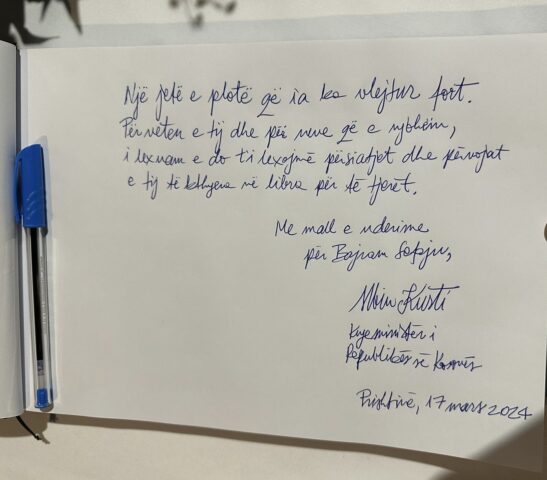 Një jetë e plotë që ia ka vlejtur fort.
Për veten e tij dhe për neve që e njohëm,
i lexuam e do t'i lexojmë përsiatjet dhe përvojat
e tij të kthyera në libra për të tjerët.
Me mall e nderime
për Bajram
Albin Kurti
Kryeministër i
Republikës së Kosovës
Prishtinë, 17 mars 2024